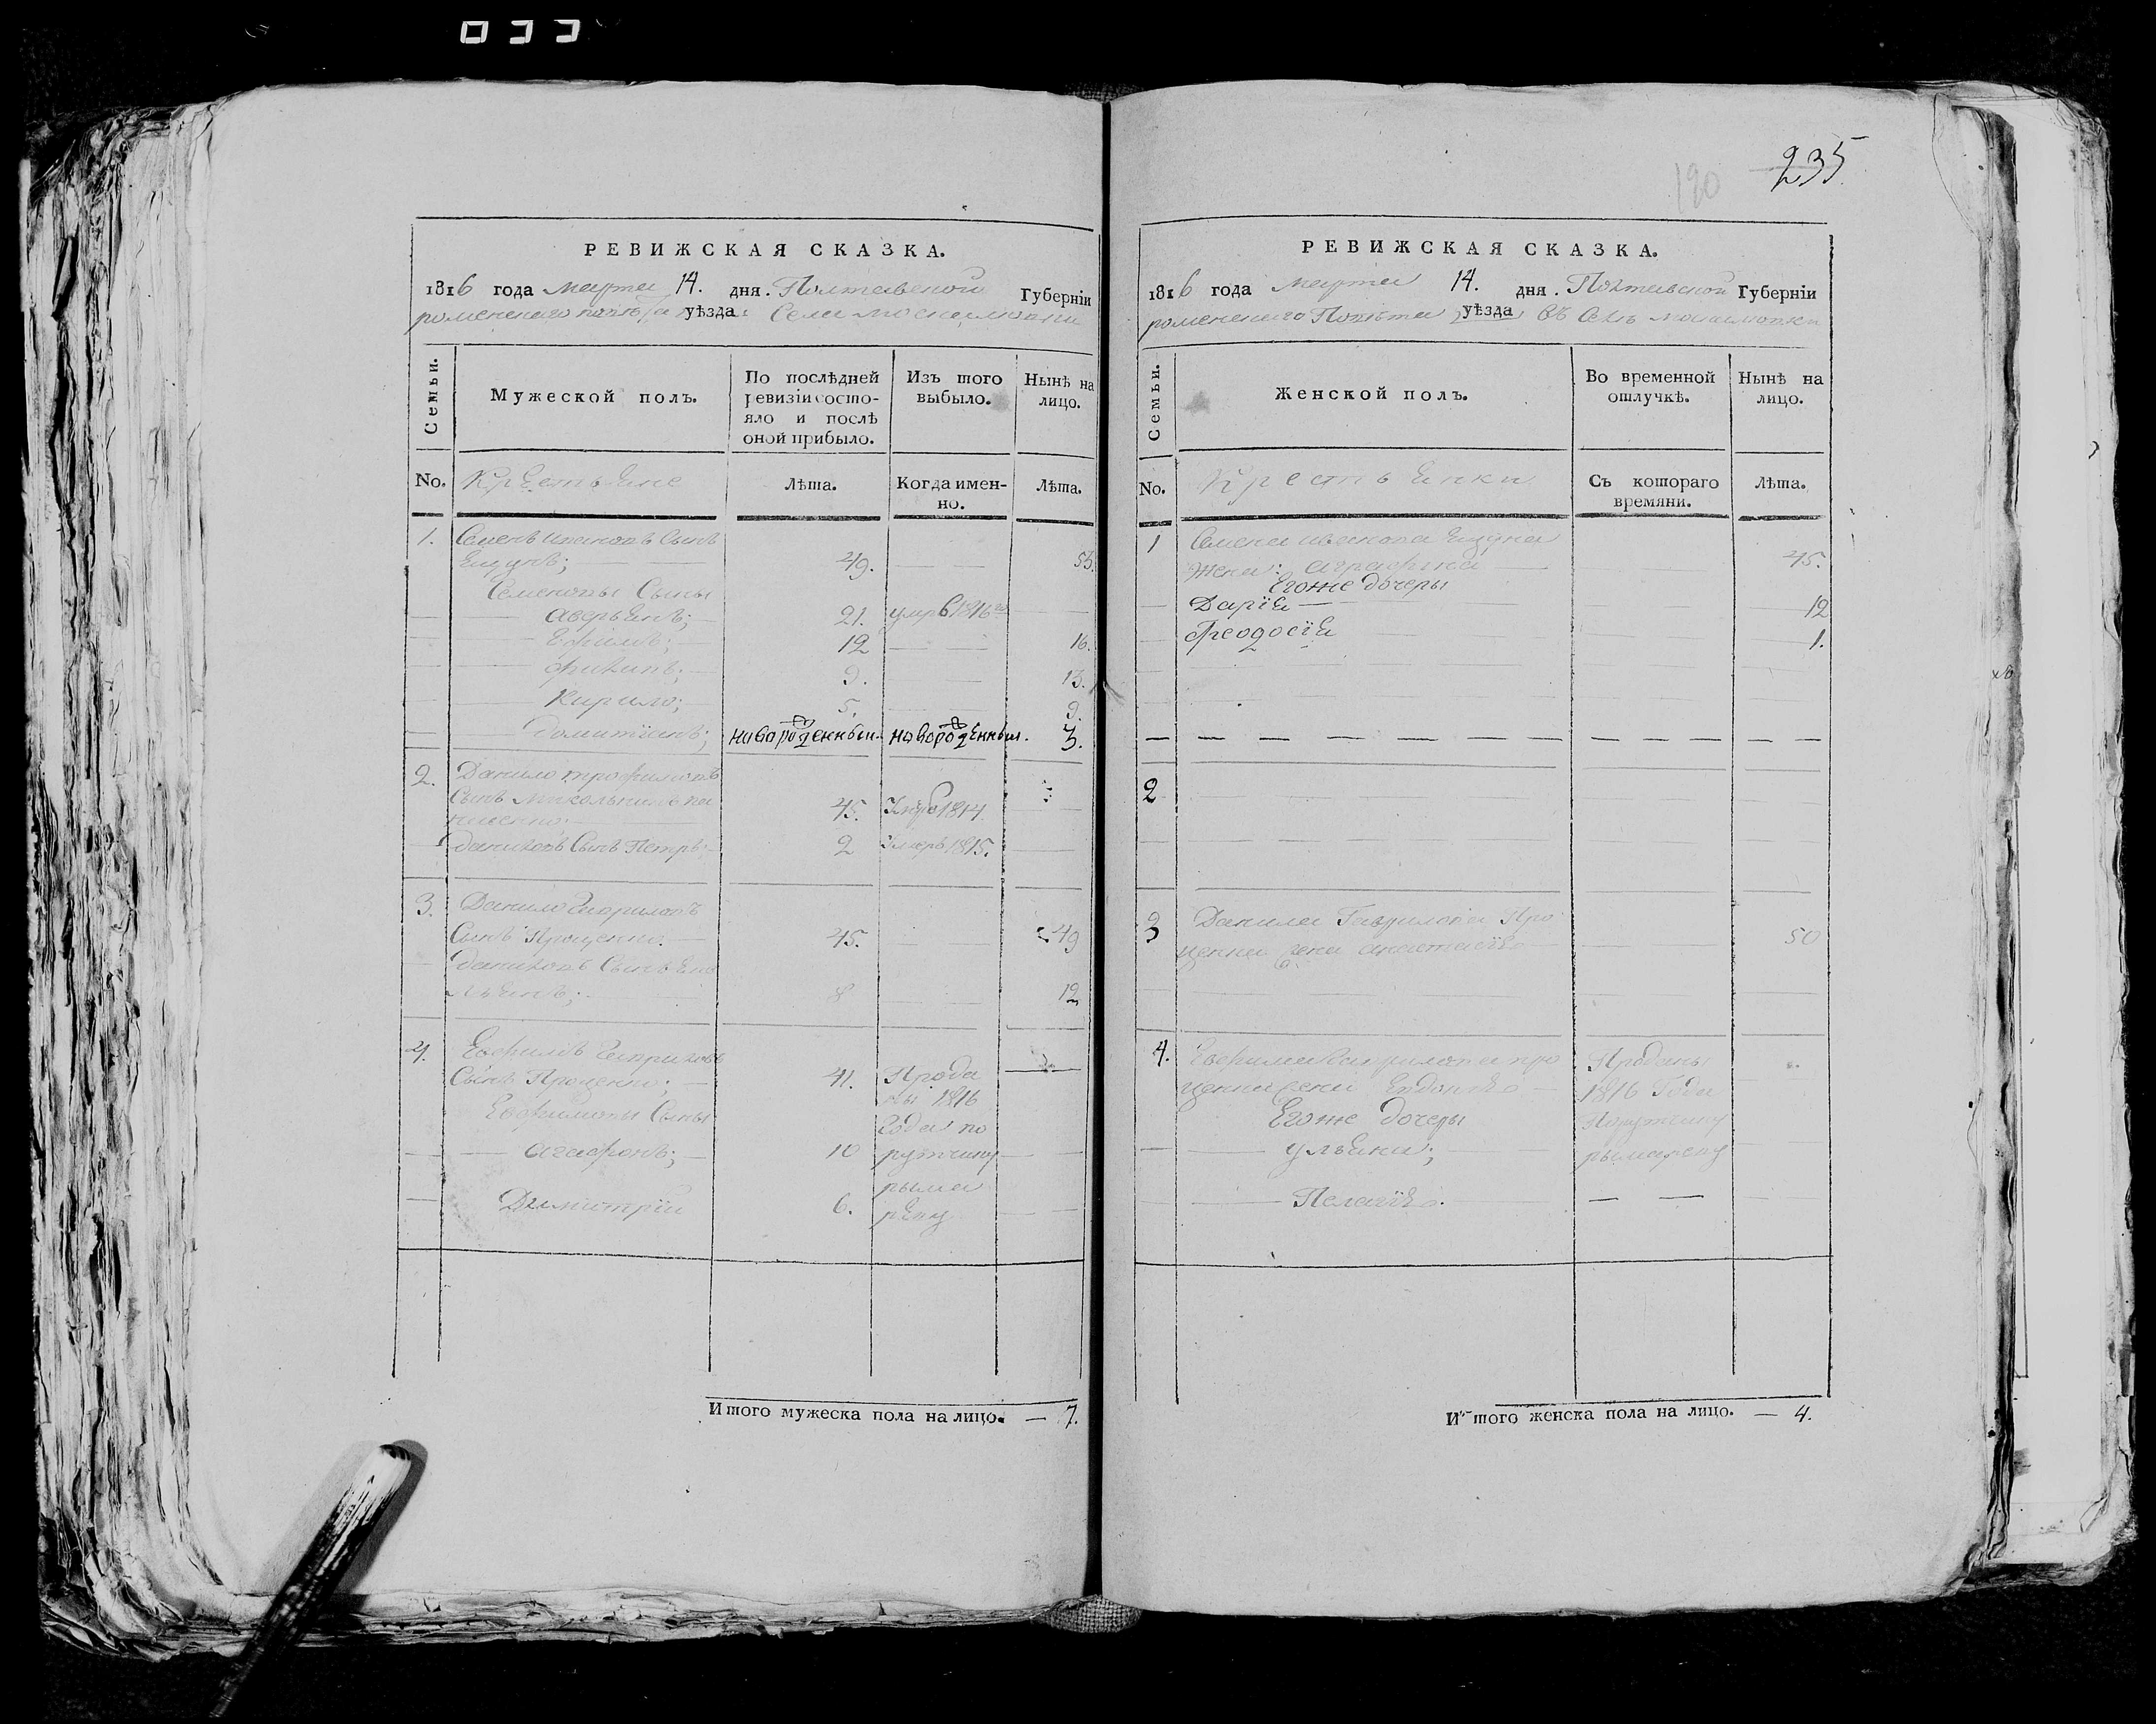 033
РЕВИЖСКАЯ СКАЗКА.
1816 года марта 14. дня. Полтавской Губерніи
роменского повѣта уѣзда: Села
Семьи.
Мужеской полъ.
По послѣдней ревизіи состояло и послѣ оной прибыло.
Изъ того выбыло.
Нынѣ на лицо.
No. Крестьяне
Лѣта.
Когда именно.
Лѣта.
1. Семенъ Ивановъ Сынъ
49. 53.
Семеновы Сыны
Аверьянъ; 21. умръ 1816го
Ефимъ; 12 16.
Филипъ; 9. 13.
Кирило; 5. 9.
Домитіянъ; новорожденный. новорожденный. 3.
2. Данило трофимовъ
Сынъ 45. Умръ 1814.
Даниловъ Сынъ Петръ; 2 Умеръ 1815.
3. Данило Гавриловъ
Сынъ Проценко. 45. 49
Даниловъ Сынъ Емельянъ; 8 12
4. Евфимъ Гавриловъ
Сынъ Проценко; 41. Проданы 1816
Евфимовы Сыны года по
Агафонъ; 10 рутчику
Димитрій 6. рымаренку
Итого мужеска пола на лицо. — 7.
190 235
РЕВИЖСКАЯ СКАЗКА.
1816 года марта 14. дня. Полтавской Губерніи
роменского Повѣта уѣзда въ Селѣ
Семьи.
Женской полъ.
Во временной отлучкѣ.
Нынѣ на лицо.
No. Крестьянки
Съ котораго времяни.
Лѣта.
1 Семена иванова
жена: аграфина 45.
Егоже дочеры
Дарія 12
Феодосія 1.
2
3 Данила Гаврилова Проценка жена анастасія 50
4. Евфима Гаврилова проценка жена Евдокія Проданы 1816 Года
Егоже дочеры Порутчику
ульяна; рымаренку
Пелагія.
Итого женска пола на лицо. — 4.